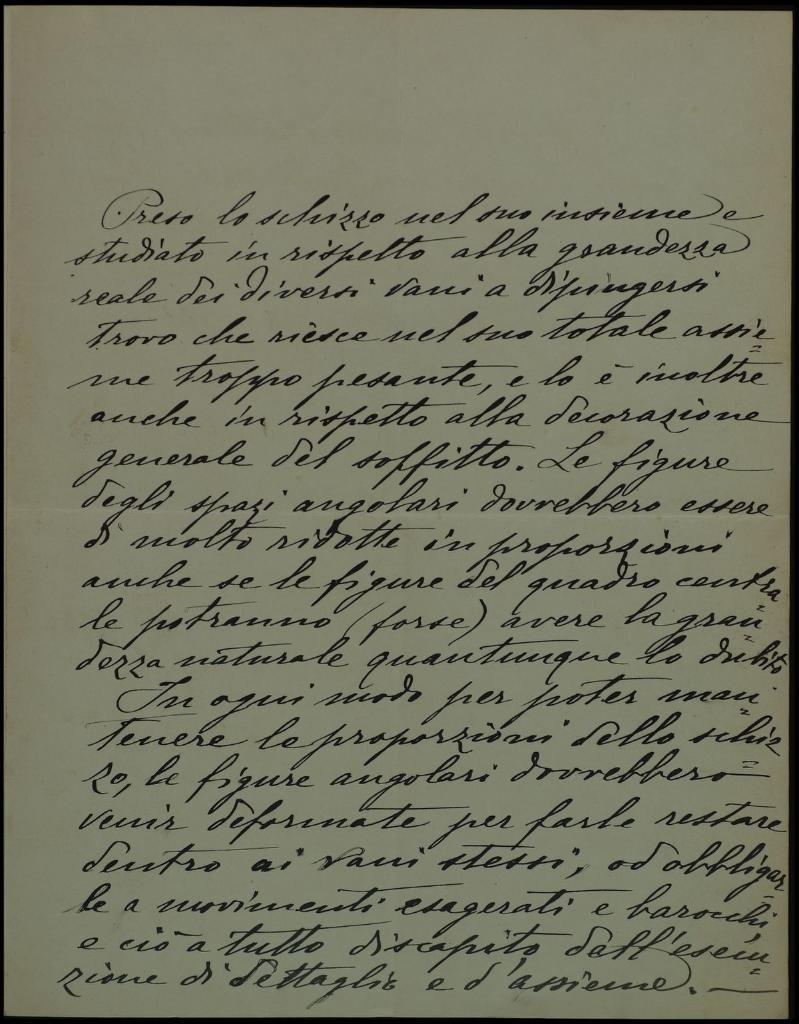 Preso lo schizzo nel suo insieme e
studiato in rispetto alla grandezza
reale dei diversi vani a dipingersi
trovo che riesce nel suo totale assie=
me troppo pesante, e lo è inoltre
anche in rispetto alla decorazione
generale del soffitto. Le figure
degli spazi angolari dovrebbero essere
di molto ridotte in proporzioni
anche se le figure del quadro centra=
le potranno (forse) avere la gran=
dezza naturale quantunque lo dubito
In ogni modo per poter man=
tenere le proporzioni dello schiz=
zo, le figure angolari dovrebbero
venir deformate per farle restare
dentro ai vani stessi, od obbligar=
le a movimenti esagerati e barocchi
e ciò a tutto discapito dell'esecu=
zione di dettaglio e d'assieme. —